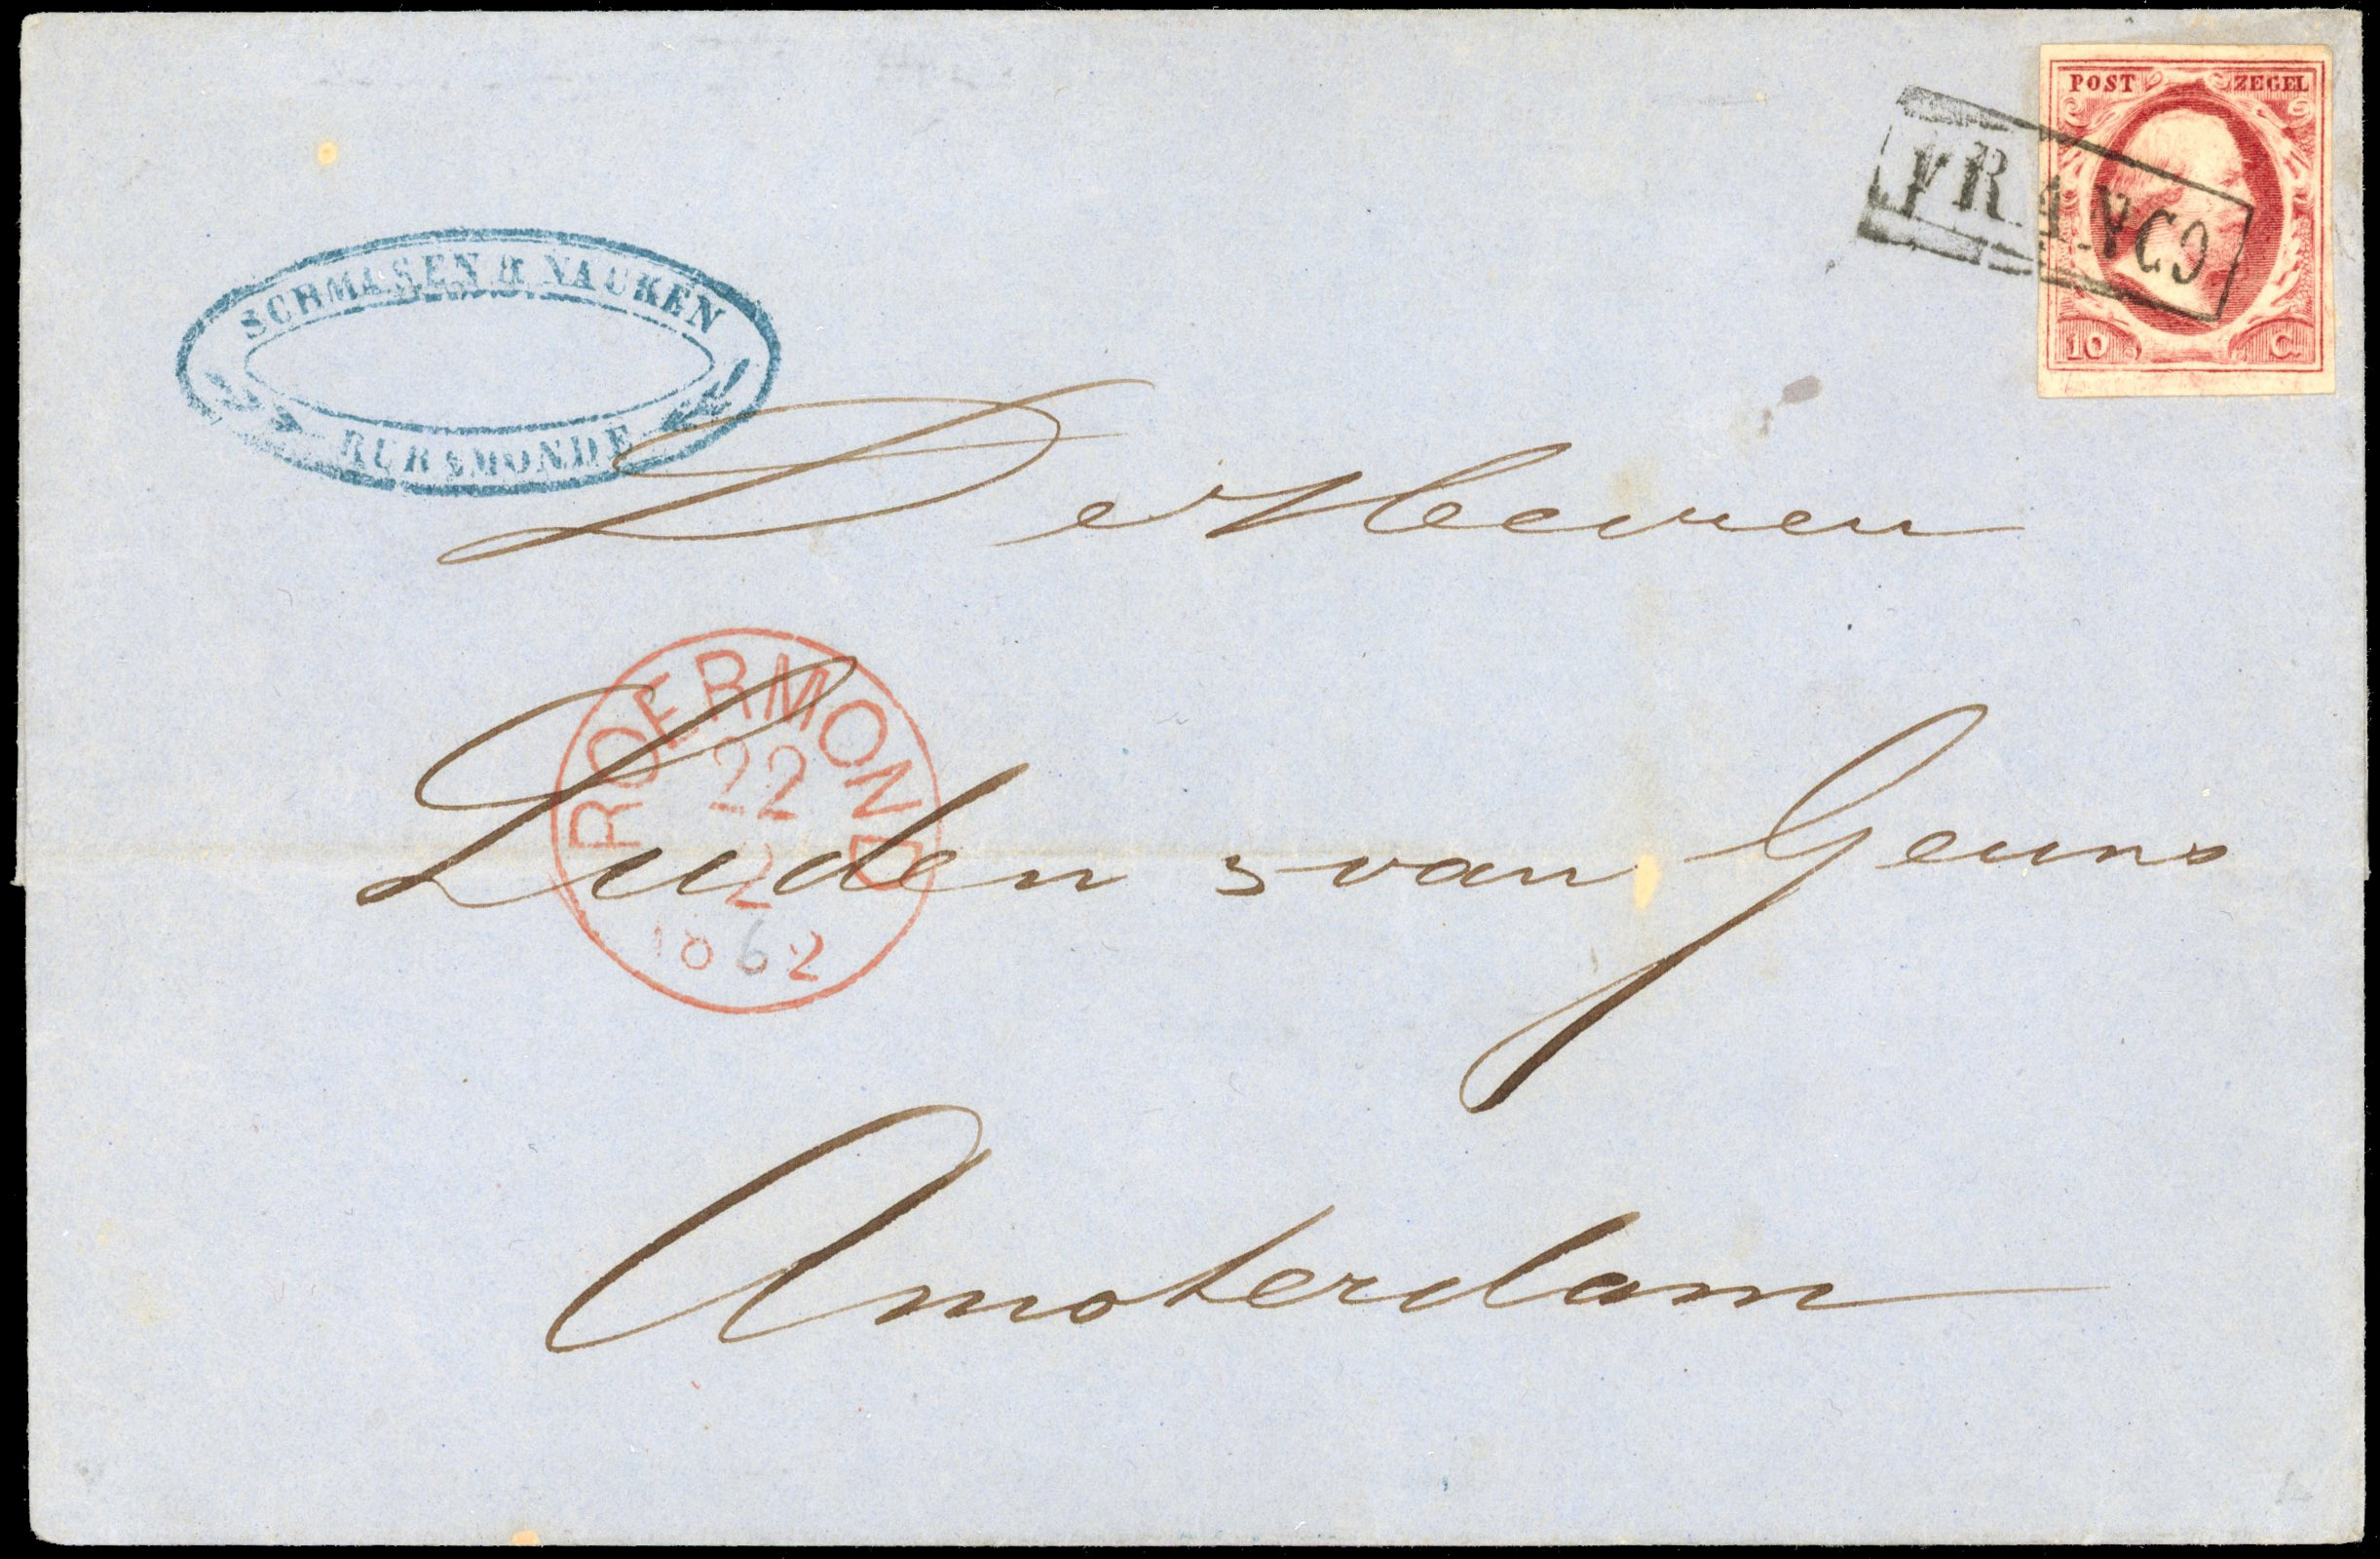 POST ZEGEL
FRANCO
10 C.
SCHMASEN & NAUKEN
RUREMONDE
De Heeren
ROERMOND
22
2
1862
Luden & van Geuns
Amsterdam